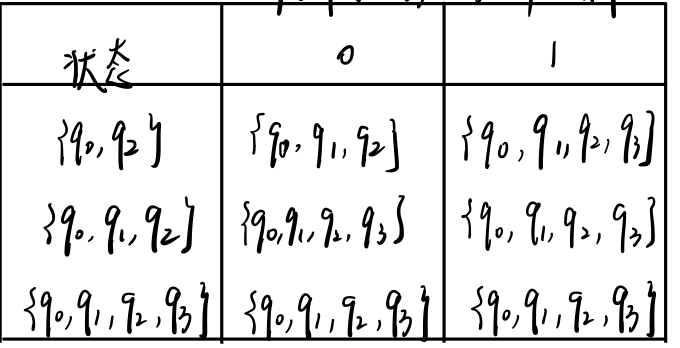 状态 0 1
{q0, q2} {q0, q1, q2} {q0, q1, q2, q3}
{q0, q1, q2} {q0, q1, q2, q3} {q0, q1, q2, q3}
{q0, q1, q2, q3} {q0, q1, q2, q3} {q0, q1, q2, q3}